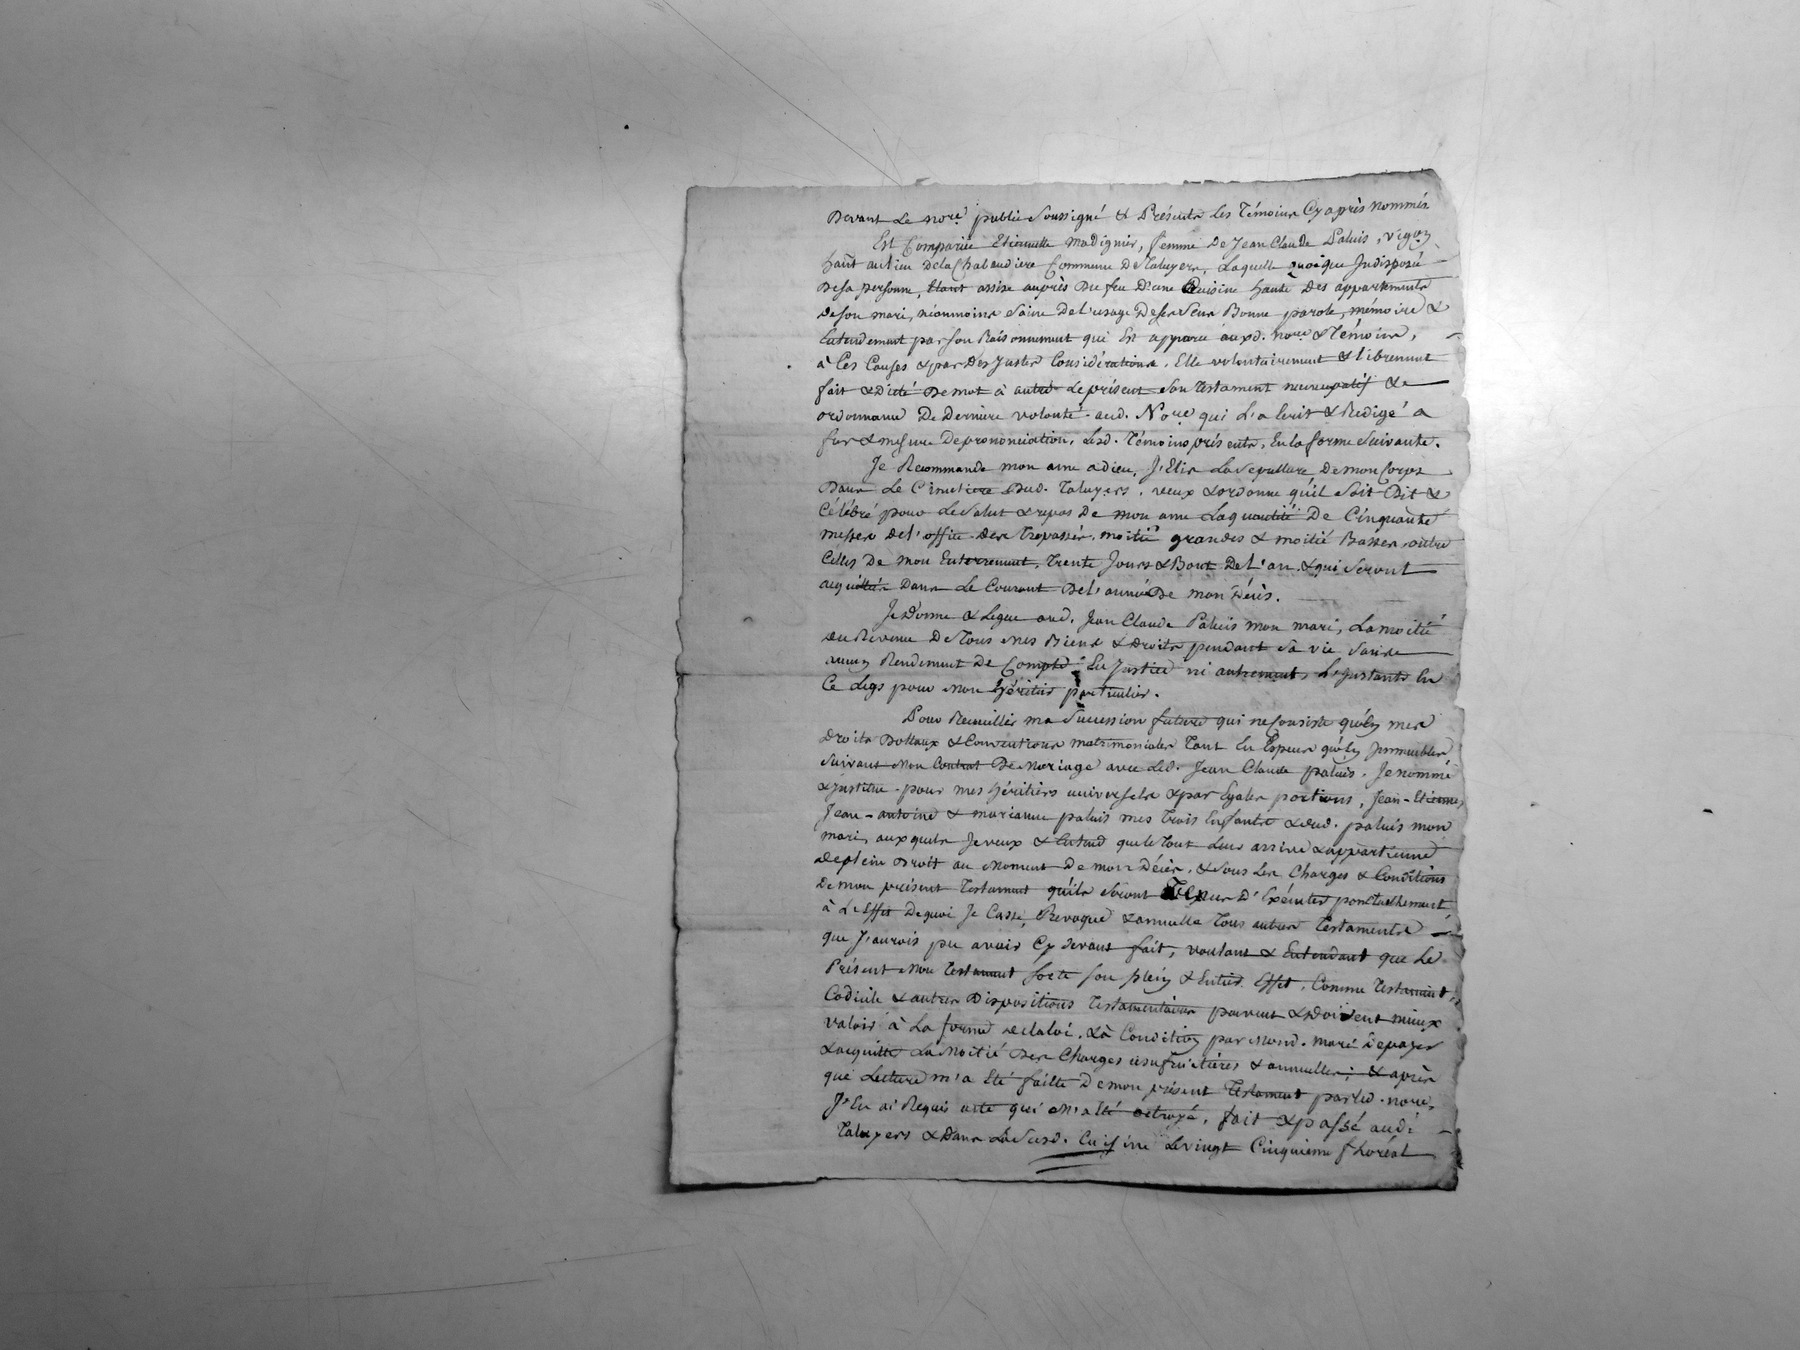 Devant Le nore. public soussigné & Présents Les Témoins Cy après nommés
Est Comparüe Etiennette madignier, femme De Jean Claude Paluis, vigon
hañt au lieu dela Chabaudiere Commune De Taluyers, Laquelle quoique Indisposée
De sa personne, Etant assise auprès Du feu D'une Cuisine haute Des appartements
De son mari, néonmoins Saine De l'usage De ses Sens Bonne parole, mémoire &
Entendement par son Raisonnement qui Est apparu auxd. nore & Témoins,
à Ces Causes & par Des Justes Considérations, Elle volontairement & librement
fait & Dicté De mot à autre Le présent Son Testament nuncupatif &
ordonnance De Derniere volonté aud. Nore qui L'a Ecrit & Redigé a
fur & mesure De prononciation, Lesd. Témoins présents, En la forme Suivante.
Je Recommande mon ame a dieu, J'Elis La Sepulture De mon Corps
Dans Le Cimetiere Dud. Taluyers, veux & ordonne qu'il Soit Dit &
Célébré pour Le Salut & repos De mon ame La quantité De Cinquante
messes De l'office Des Trepassés, moitié grandes & moitié Basses, outre
Celles De mon Enterrement, Trente Jours & Bout De L'an, & qui Seront
acquittés Dans Le Courant De L'année De mon Décés.
Je Donne & Legue aud. Jean Claude Paluis mon mari, La moitié
du Revenu De Tous mes Biens & Droits pendant Sa vie, Sans
aucun Rendement De Compte En Justice ni autrement, L'Instants En
Ce Legs pour mon héritier particulier.
Pour Recueillir ma Succession future qui ne Consiste qu'en mes
Droits Dottaux & Conventions matrimoniales Tant En Espèces qu'en Immeubles
Suivant mon Contrat De mariage avec Led. Jean Claude paluis. Je nomme
& Institue pour mes héritiers universels & par Egales portions, Jean-Etienne,
Jean-antoine & marianne paluis mes Trois Enfants & dud. paluis mon
mari, auxquels Je veux & Entend que le Tout Leur arrive & appartienne
De plein Droit au moment De mon Décès, & Sous Les Charges & Conditions
De mon présent Testament qu'ils Seront Tenus D'Exécuter ponctuellement
à L'Effet De quoi Je Casse, Revoque & annulle Tous autres Testaments
que J'aurois pu avoir Cy devant fait, voulant & Entendant que Le
Présent mon Testament Sorte Son plein & Entier Effet, Comme Testament,
Codicile & autres Dispositions Testamentaires peuvent & Doivent mieux
valoir à La forme de la loi, & à Condition par mond. mari De payer
& acquitter La Moitié Des Charges usufruitières & annuelles; & après
que Lecture m'a Eté faitte De mon présent Testament par led. nore,
J'En ai Requis acte qui m'a Eté octroyé, fait & passé aud.
Taluyers & Dans La Susd. Cuisine Le vingt Cinquieme floréal